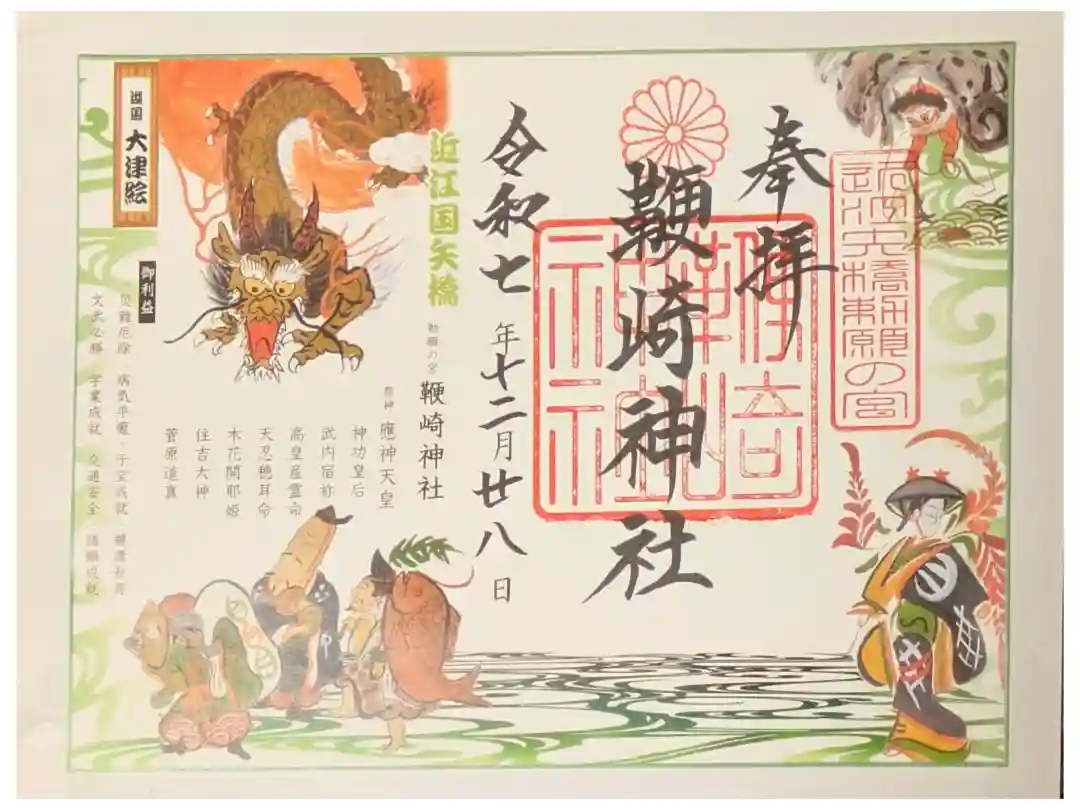 奉拝
鞭崎神社
令和七年十二月廿八日
近江国矢橋
勅願の宮
鞭崎神社
祭神 應神天皇
神功皇后
武内宿祢
高皇産霊命
天忍穂耳命
木花開耶姫
住吉大神
菅原道真
大津絵
御利益
災難厄除 病気平癒・子宝成就 健康長寿
文武必勝 学業成就 交通安全 諸願成就